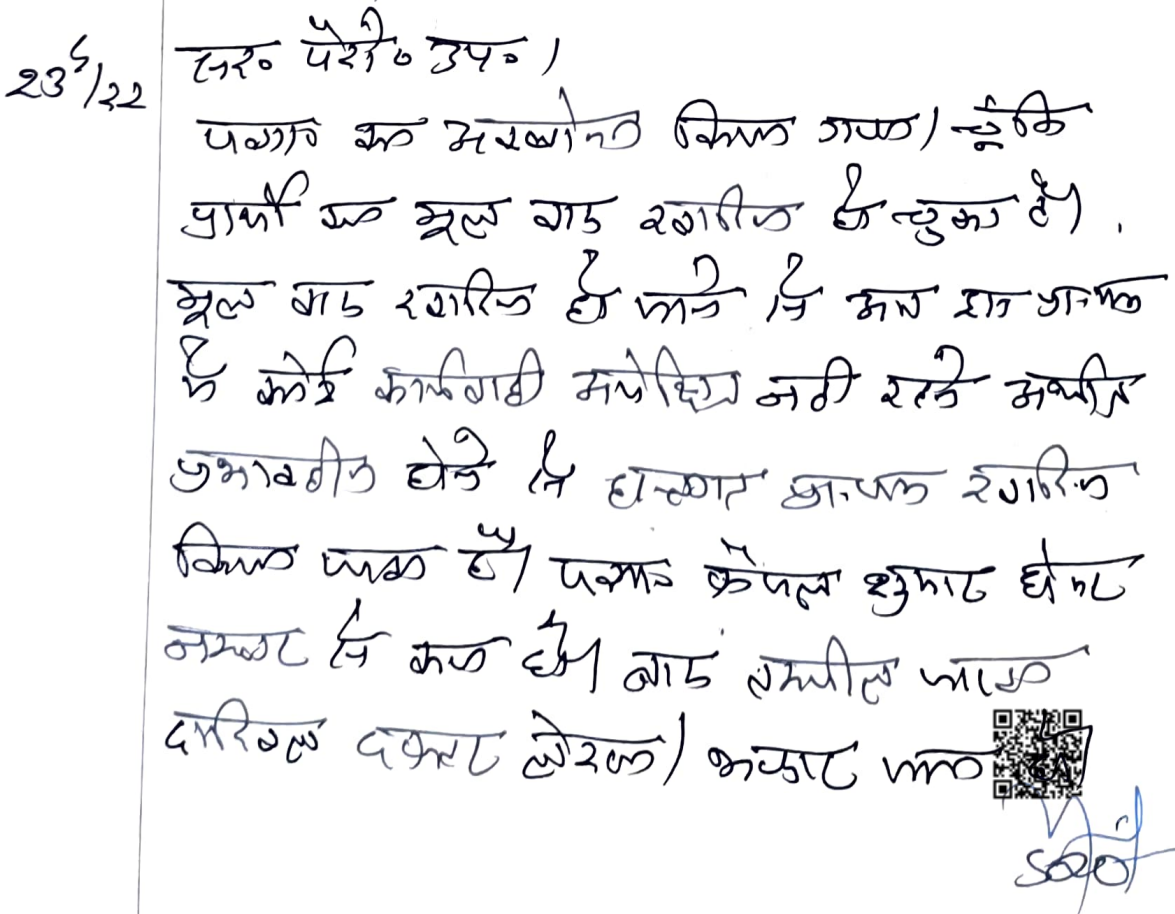 23/5/22
सर० पैरो० उप० ।
पत्रावली का अवलोकन किया गया। चूंकि
प्रार्थी का मूल वाद खारिज हो चुका है।
मूल वाद खारिज हो जाने से अब इस प्रा०पत्र
में कोई कार्यवाही अपेक्षित नहीं रहने अर्थात
प्रभावहीन होने से हस्तगत प्रा०पत्र खारिज
किया जाता है। पत्रावली फैसल शुमार होकर
नम्बर से कम हो। बाद तकमील
दाखिल दफ्तर